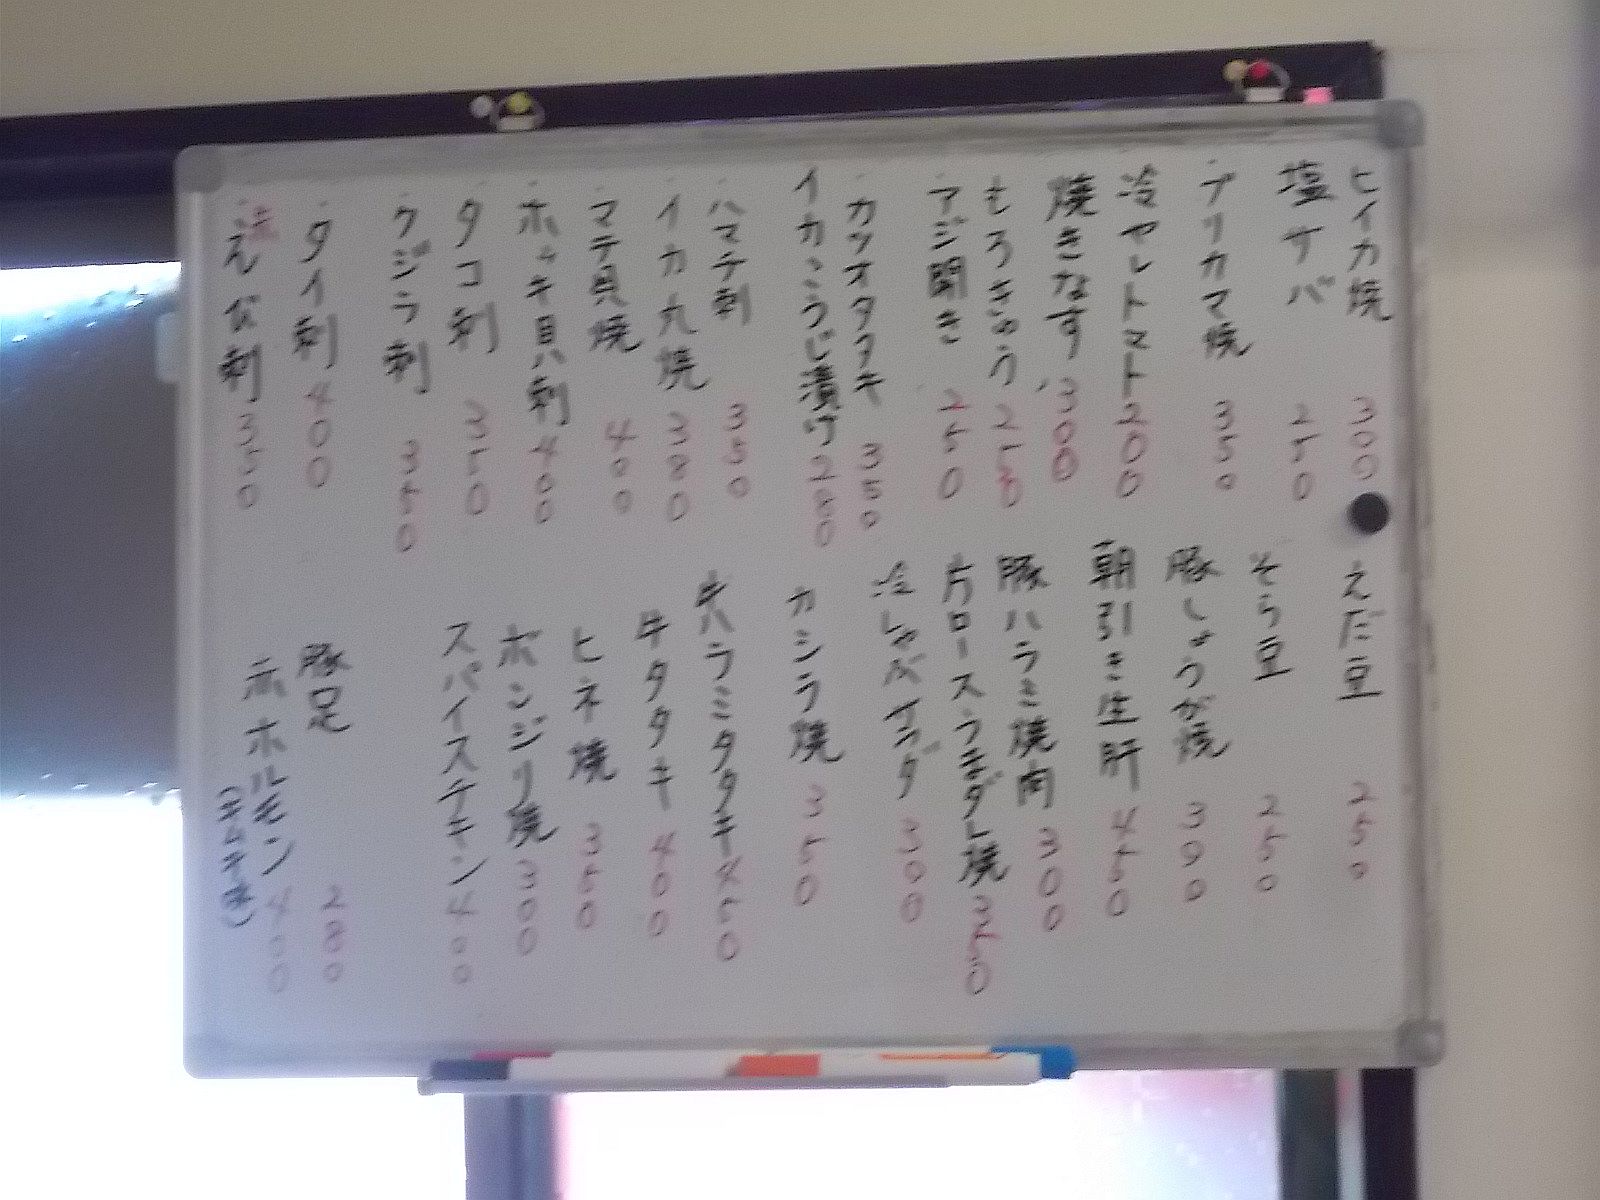 ヒイカ焼 300
塩サバ 250
ブリカマ焼 350
冷ヤしトマト 200
焼きなす 300
もろきゅう 250
アジ開き 250
カツオタタキ 350
イカこうじ漬け 280
ハマチ刺 350
イカ丸焼 380
マテ貝焼 400
ホッキ貝刺 400
タコ刺 350
クジラ刺 350
タイ刺 400
刺 350
えだ豆 250
そら豆 250
豚しょうが焼 390
朝引き生肝 450
豚ハラミ焼肉 300
片ロースうまダレ焼 350
冷しゃぶサラダ 390
カシラ焼 350
牛ハラミタタキ 450
牛タタキ 400
ヒネ焼 350
ボンジリ焼 300
スパイスチキン 400
豚足 280
ホホルモン 400
(キムチ味)